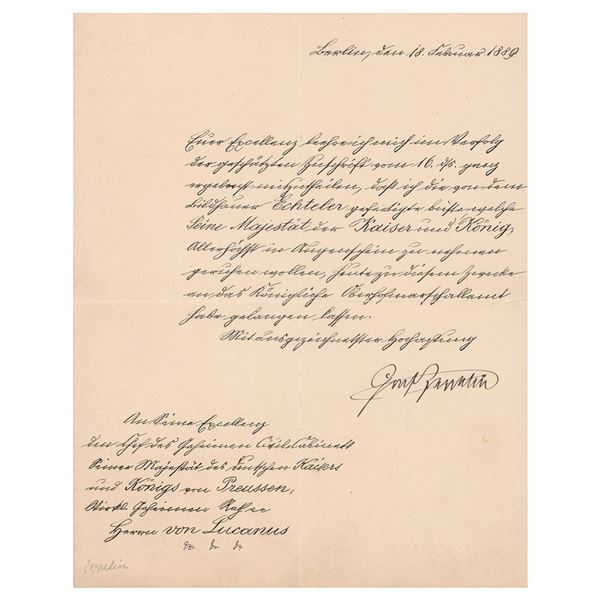 Berlin, den 18. Februar 1889.
Euer Excellenz beehre ich mich im Verfolg
der geschätzten Zuschrift vom 16. ds. ganz
ergebenst mitzutheilen, daß ich die von dem
Bildhauer Echteler gefertigte büste welche
Seine Majestät der Kaiser und König
Allerhöchst in Augenschein zu nehmen
geruhen wollen, heute zu diesem Zwecke
an das Königliche Oberhofmarschallamt
habe gelangen lassen.
Mit ausgezeichnetster Hochachtung
Graf Zeppelin
An Seine Excellenz
den Chef des Geheimen Civilcabinets
Seiner Majestät des deutschen Kaisers
und Königs von Preussen,
Wirkl. Geheimen Rath
Herrn von Lucanus
Zeppelin